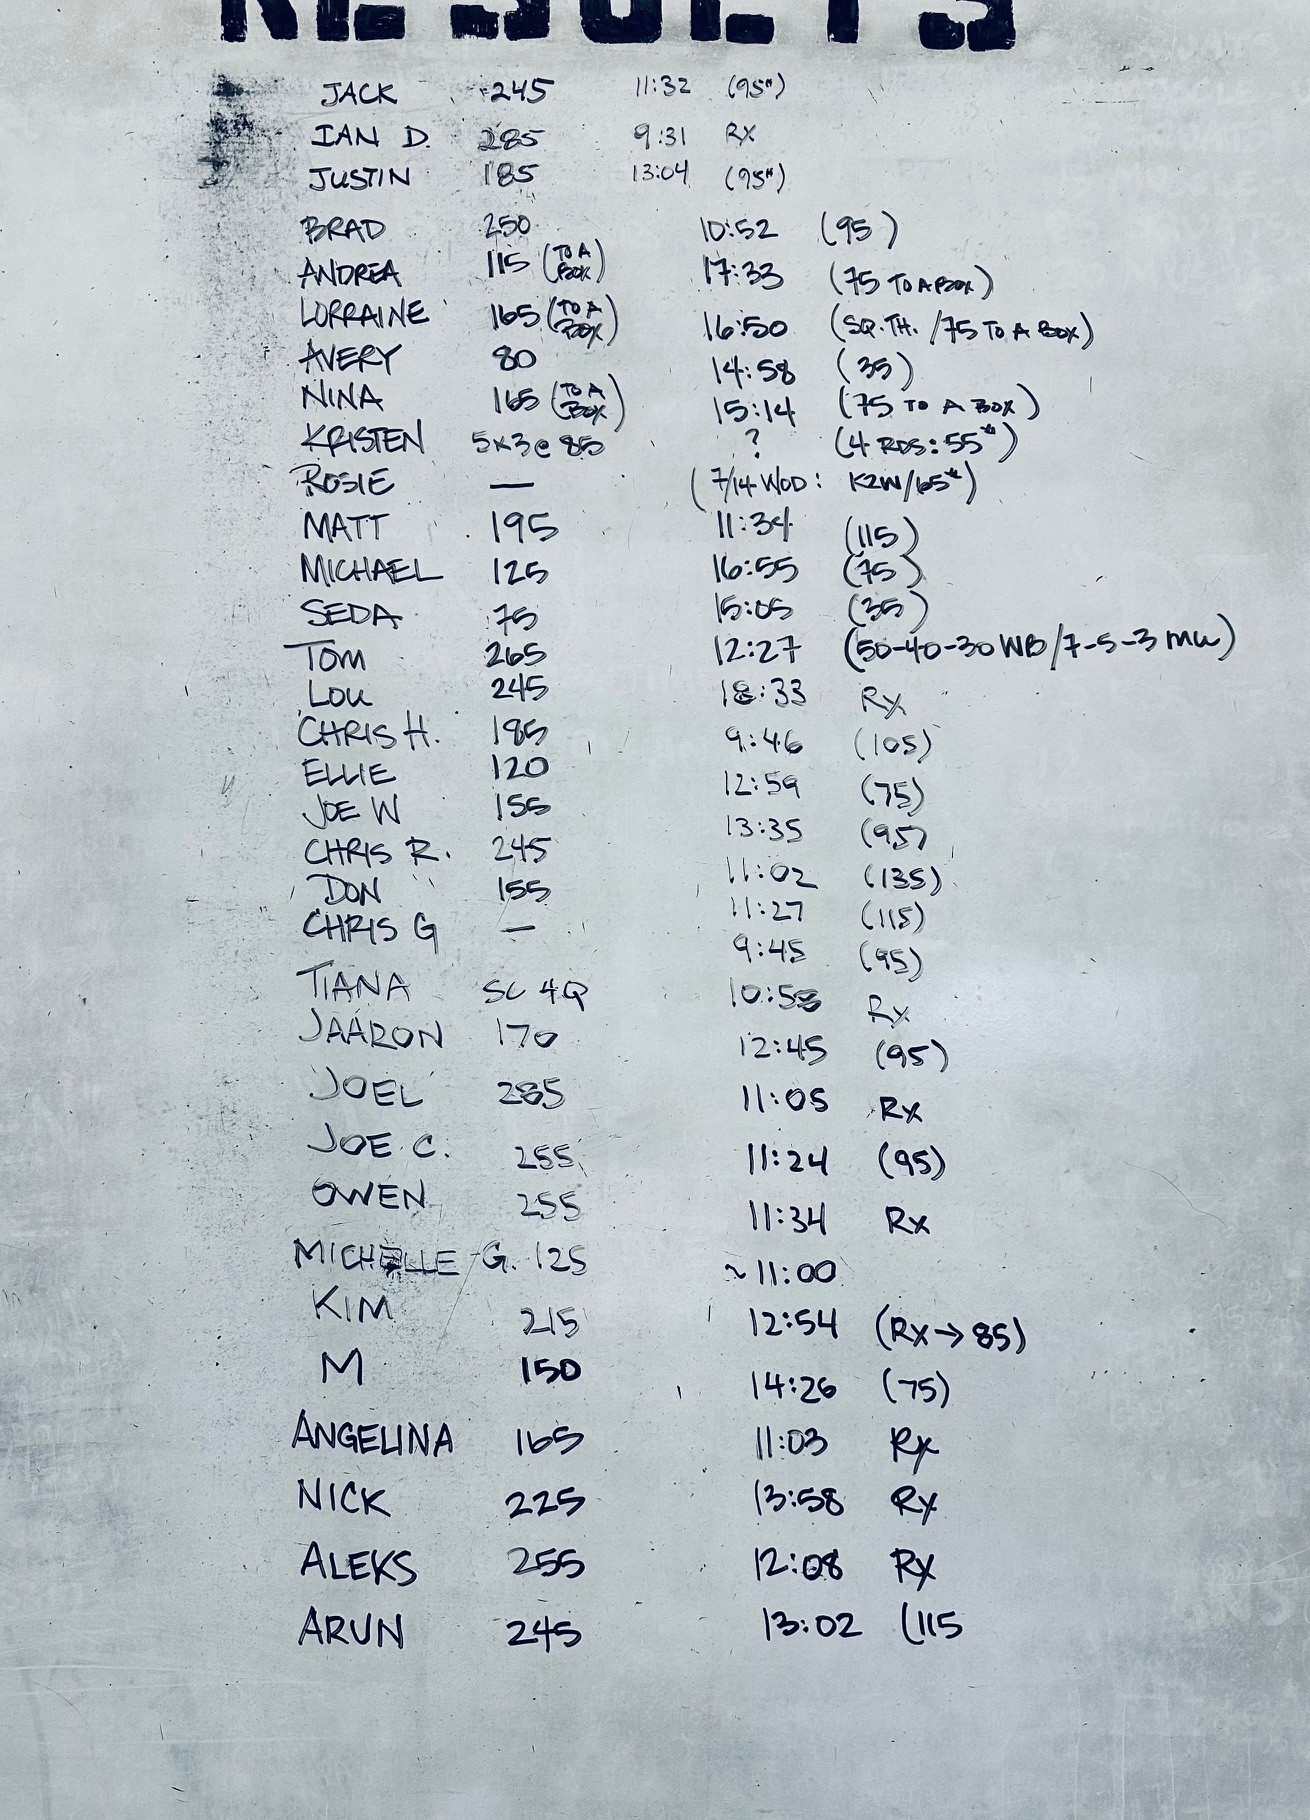 RESULTS
JACK 245 11:32 (95#)
IAN D. 285 9:31 RX
JUSTIN 185 13:04 (95#)
BRAD 250 10:52 (95)
ANDREA 115 (TO A BOX) 17:33 (75 TO A BOX)
LORRAINE 165 (TO A BOX) 16:50 (SQ.TH. /75 TO A BOX)
AVERY 80 14:58 (35)
NINA 165 (TO A BOX) 15:14 (75 TO A BOX)
KRISTEN 5x3@85 ? (4 RDS: 55#)
ROSIE — (7/14 WOD: K2W/65#)
MATT 195 11:34 (115)
MICHAEL 125 16:55 (75)
SEDA 75 15:05 (35)
TOM 265 12:27 (50-40-30 WB/7-5-3 MU)
LOU 245 18:33 Rx
CHRIS H. 185 9:46 (105)
ELLIE 120 12:59 (75)
JOE W 155 13:35 (95)
CHRIS R. 245 11:02 (135)
DON 155 11:27 (115)
CHRIS G — 9:45 (95)
TIANA SC 4Q 10:58 Rx
JAARON 170 12:45 (95)
JOEL 285 11:05 Rx
JOE C. 255 11:24 (95)
OWEN 255 11:34 Rx
MICHELLE G. 125 ~11:00
KIM 215 12:54 (Rx→85)
M 150 14:26 (75)
ANGELINA 165 11:03 Rx
NICK 225 13:58 Rx
ALEKS 255 12:08 Rx
ARUN 245 13:02 (115